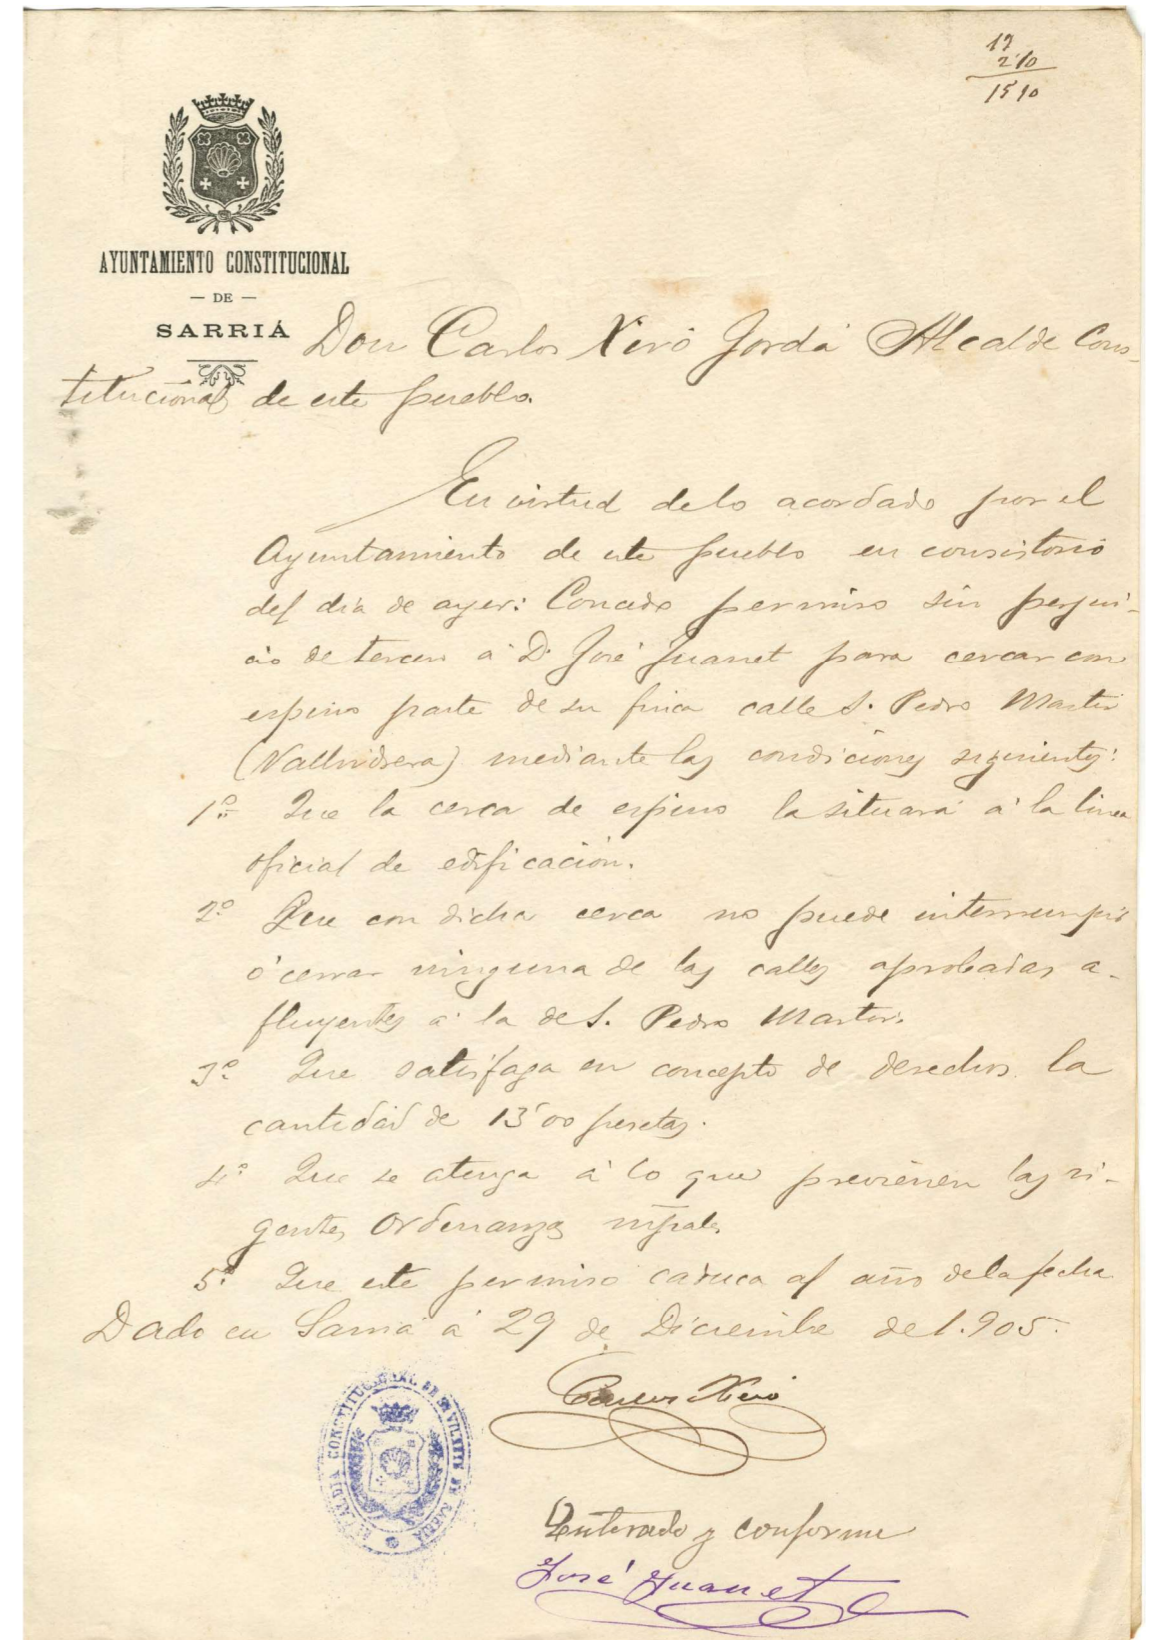 17
2'10
15 10
AYUNTAMIENTO CONSTITUCIONAL
— DE —
SARRIÁ
Don Carlos Xiró Jordá Alcalde Cons-
titucional de este pueblo.
En virtud de lo acordado por el
Ayuntamiento de este pueblo en consistorio
del día de ayer: Concedo permiso sin perjui-
cio de tercero á D. José Juanet para cercar con
espino parte de su finca calle S. Pedro Martir
(Vallvidrera) mediante las condiciones siguientes:
1ª Que la cerca de espino la situará á la linea
oficial de edificación.
2ª Que con dicha cerca no puede interrumpir
ó cerrar ninguna de las calles aprobadas a-
fluyentes á la de S. Pedro Martir.
3ª Que satisfaga en concepto de derechos la
cantidad de 13'00 pesetas.
4ª Que se atenga á lo que previenen las vi-
gentes Ordenanzas mpales
5ª Que este permiso caduca al año de la fecha
Dado en Sarriá á 29 de Diciembre de 1.905.
Carlos Xiró
ALCALDIA CONSTITUCIONAL DE SARRIÁ
Enterado y conforme
José Juanet